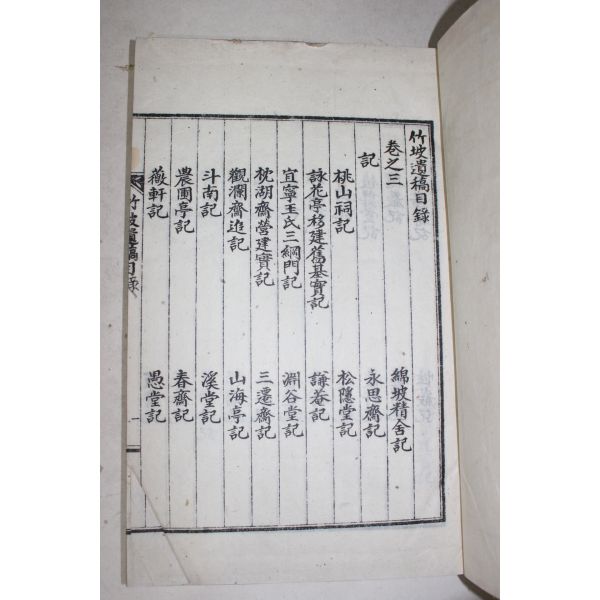 竹坡遺稿目錄
卷之三
綿坡精舍記
記
永思齋記
桃山祠記
松隱堂記
詠花亭移建舊基實記
謙菴記
宜寧王氏三綱門記
淵谷堂記
枕湖齋營建實記
三遷齋記
觀瀾齋追記
山海亭記
斗南記
溪堂記
農圃亭記
春齋記
薇軒記
愚堂記
竹坡遺稿目錄
一